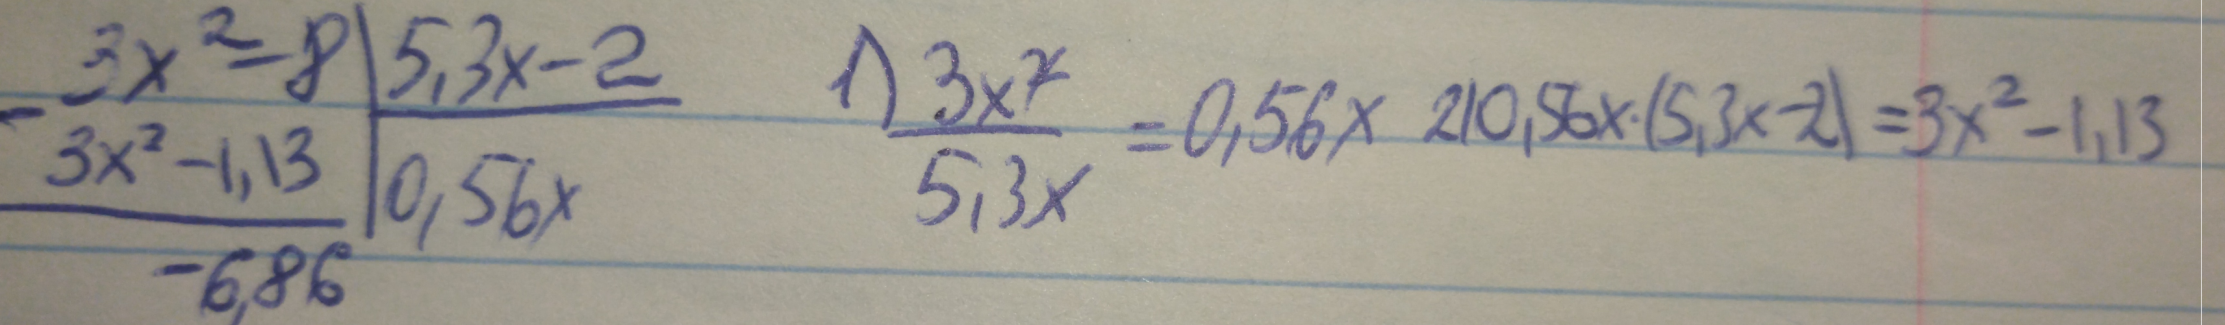 3x² - 8 | 5,3x - 2
- 3x² - 1,13 | 0,56x
-6,86
1) 3x² / 5,3x = 0,56x 2) 0,56x·(5,3x-2) = 3x² - 1,13